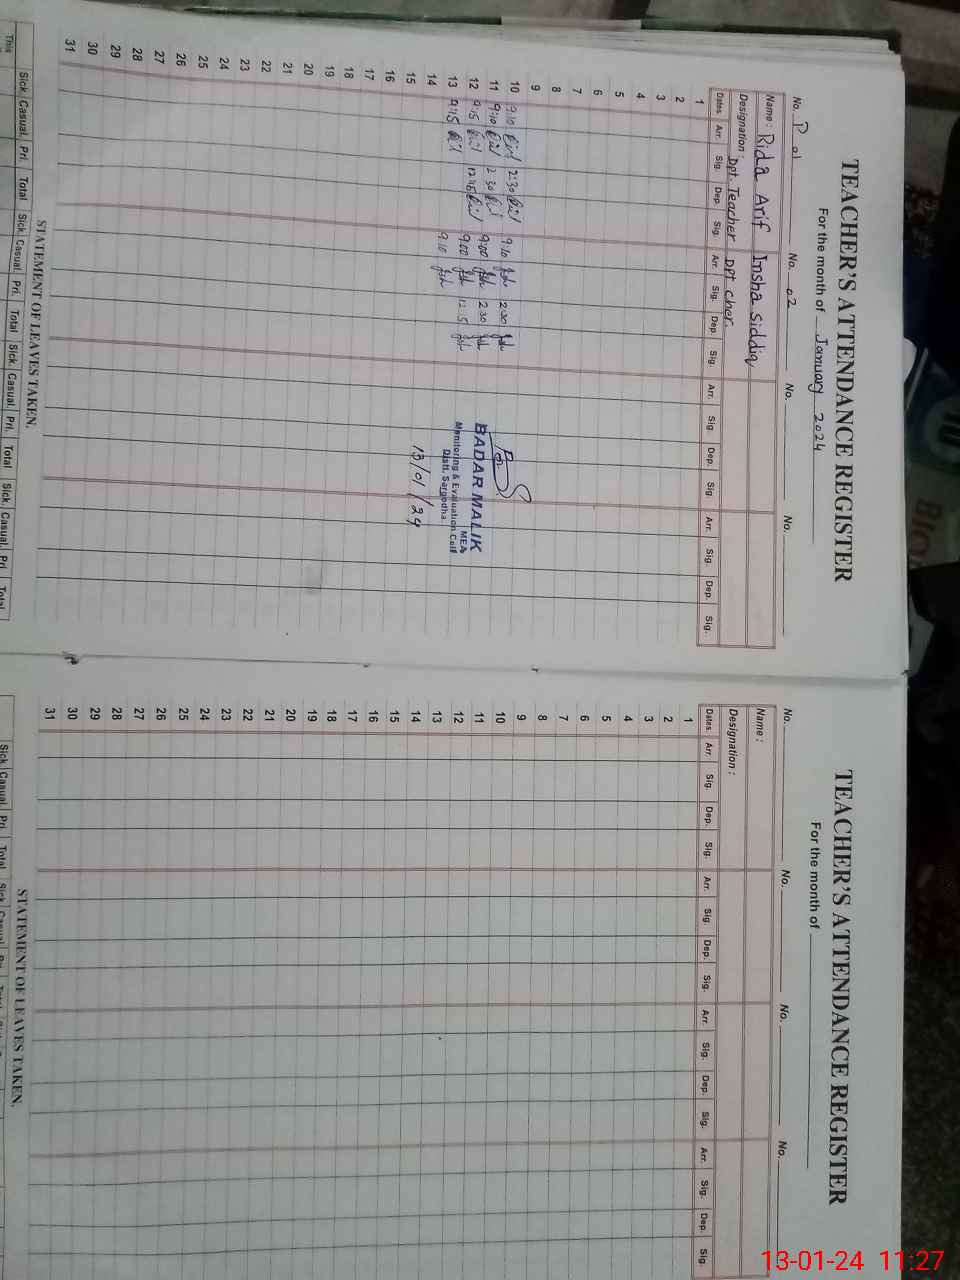 TEACHER'S ATTENDANCE REGISTER
For the month of January 2024
No. P 01 No. 02 No. No.
Name : Rida Arif Insha Siddiq
Designation : Dpt. Teacher Dpt cher.
Dates. Arr. Sig. Dep. Sig. Arr. Sig. Dep. Sig. Arr. Sig Dep. Sig. Arr. Sig. Dep. Sig.
1
2
3
4
5
6
7
8
9
10 9:10 2:30 9:10 2:30
11 9:10 2 30 9:00 2 30
12 9:15 12:15 9:00 12:15
13 9:15 9:10
14
15
16
17
18
19
20
21
22
23
24
25
26
27
28
29
30
31
BADAR MALIK
MEA
Monitoring & Evaluation Cell
Distt. Sargodha.
13/01/24
STATEMENT OF LEAVES TAKEN.
Sick. Casual. Pri. Total Sick. Casual. Pri. Total Sick. Casual. Pri. Total Sick. Casual. Pri Total
This
TEACHER'S ATTENDANCE REGISTER
For the month of
No. No. No. No.
Name :
Designation :
Dates. Arr. Sig Dep. Sig. Arr. Sig. Dep. Sig. Arr. Sig. Dep. Sig. Arr. Sig. Dep. Sig.
1
2
3
4
5
6
7
8
9
10
11
12
13
14
15
16
17
18
19
20
21
22
23
24
25
26
27
28
29
30
31
STATEMENT OF LEAVES TAKEN.
Sick Casual. Pri. Total Sick Casual. Pri.
13-01-24 11:27